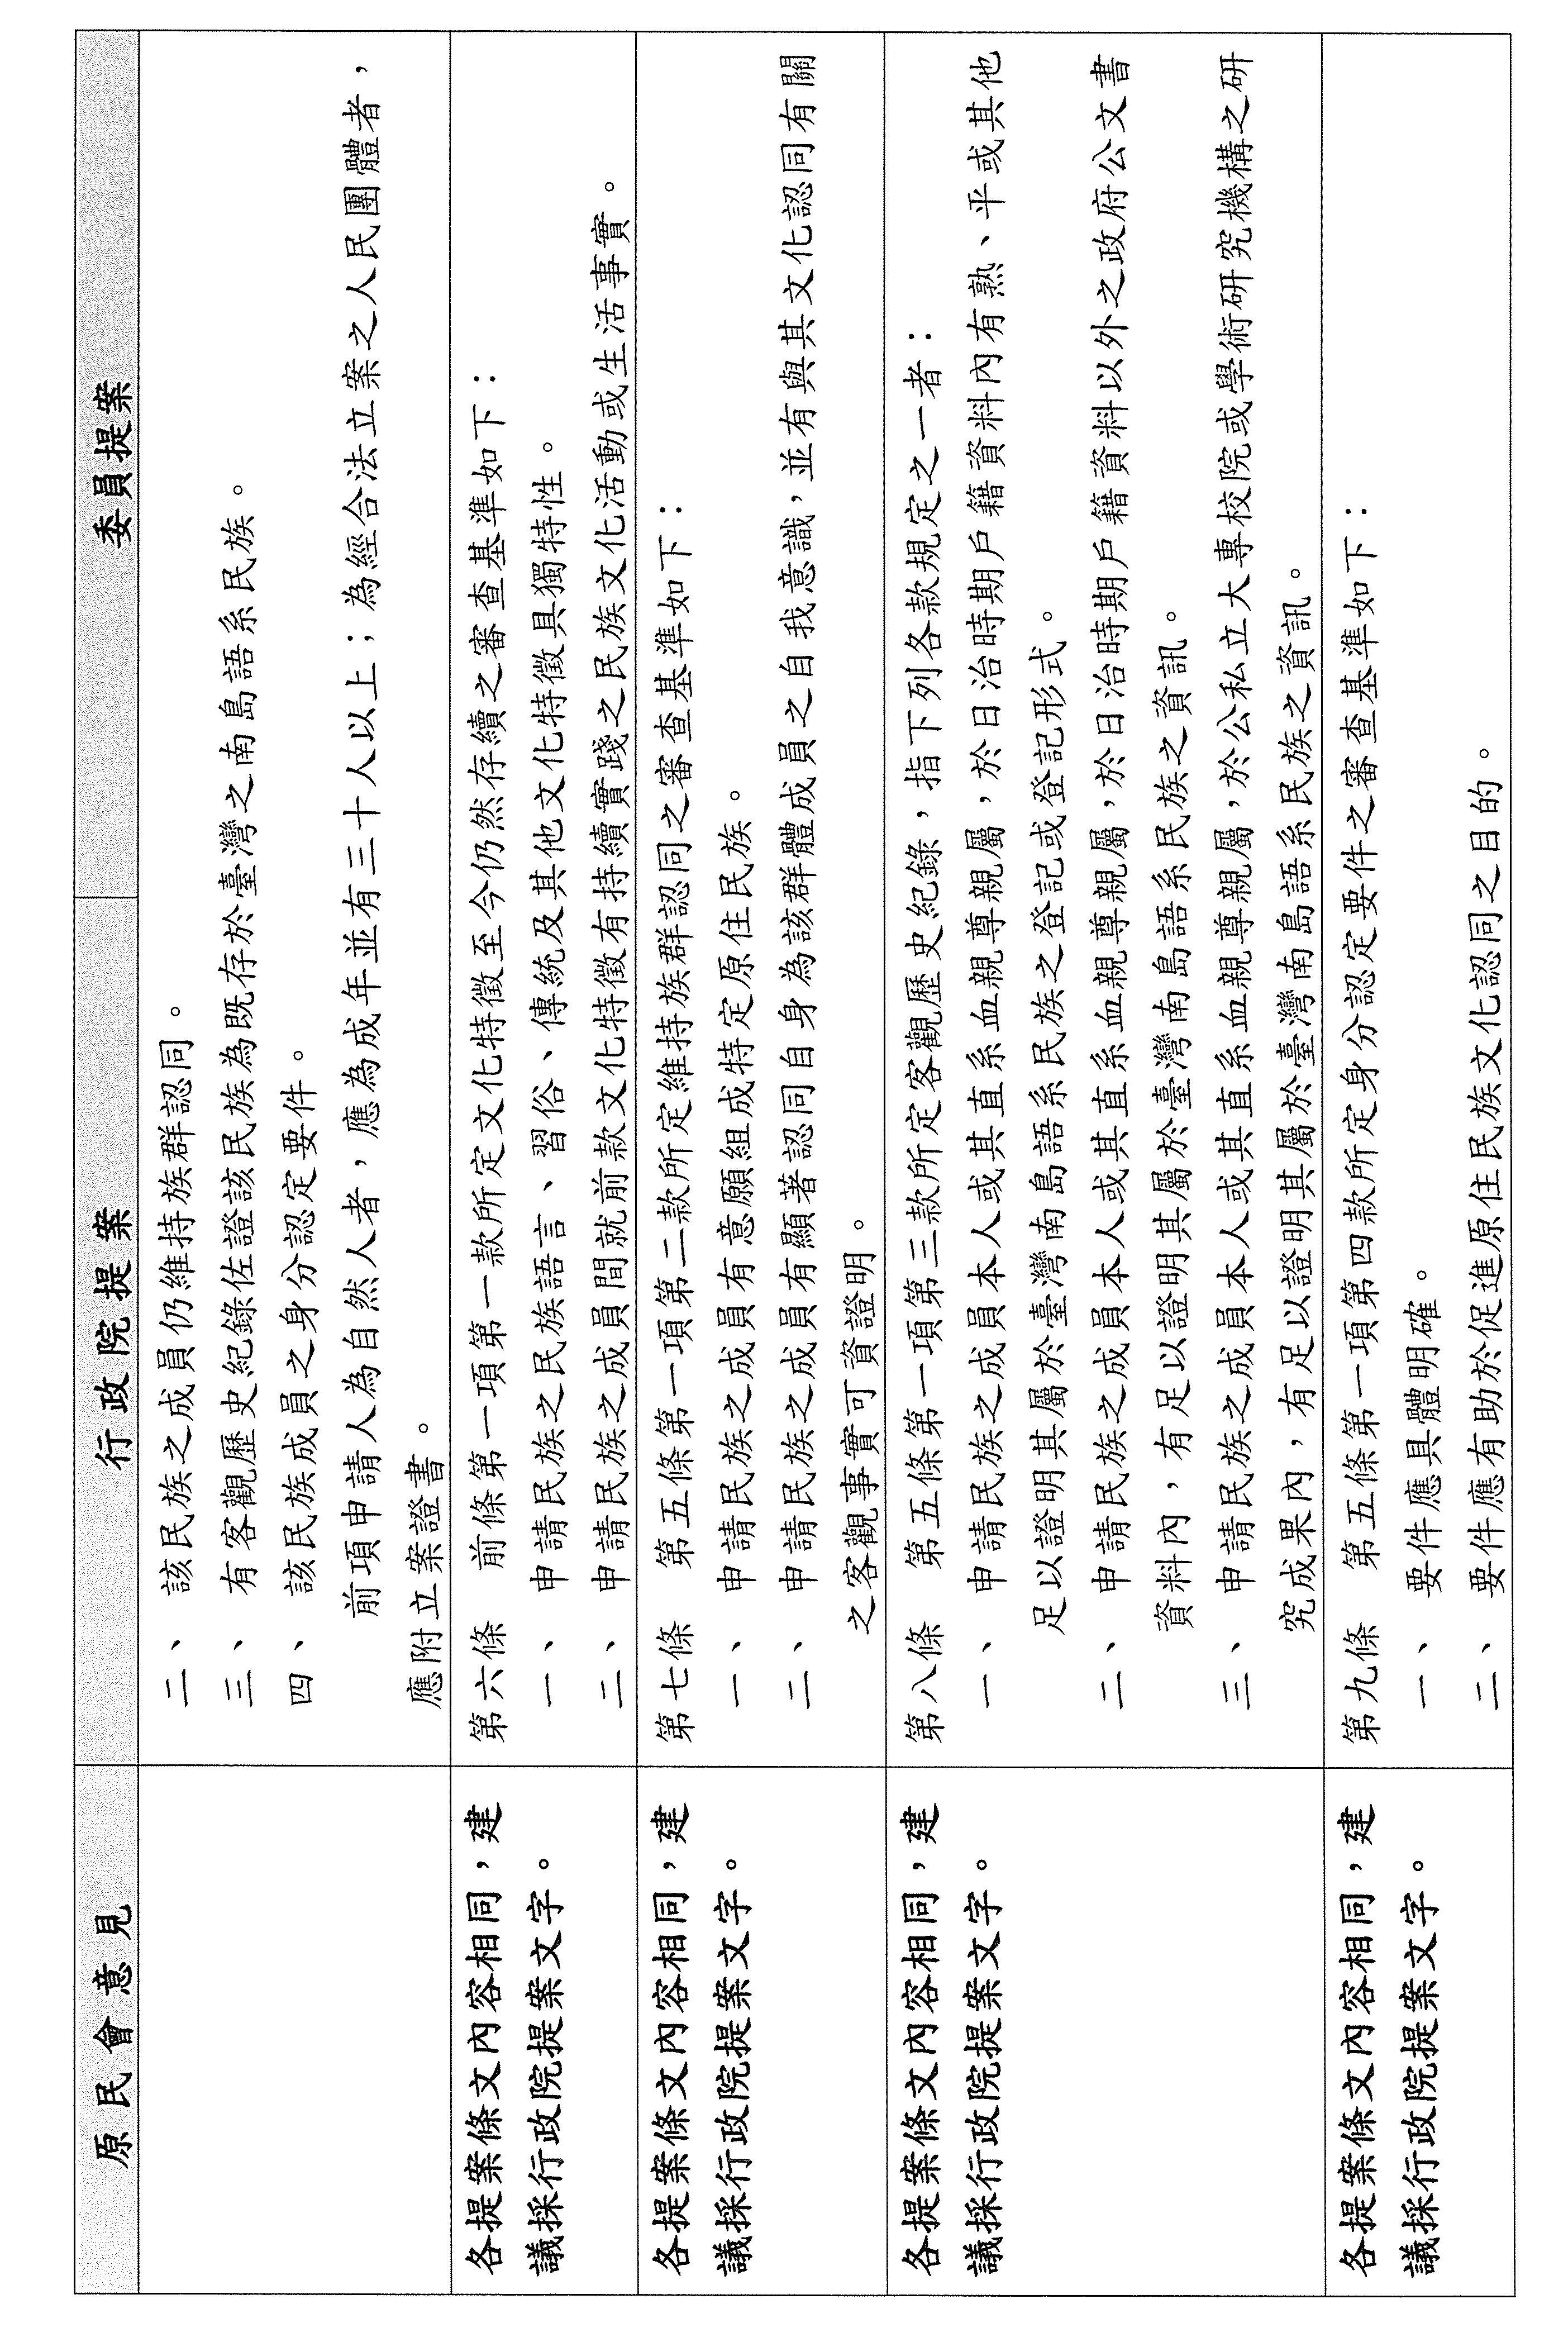 原民會意見
行政院提案
委員提案
二、該民族之成員仍維持族群認同。
三、有客觀歷史紀錄佐證該民族為既存於臺灣之南島語系民族。
四、該民族成員之身分認定要件。
前項申請人為自然人者，應為成年並有三十人以上；為經合法立案之人民團體者，
應附立案證書。
各提案條文內容相同，建
議採行政院提案文字。
第六條　前條第一項第一款所定文化特徵至今仍然存續之審查基準如下：
一、申請民族之民族語言、習俗、傳統及其他文化特徵具獨特性。
二、申請民族之成員間就前款文化特徵有持續實踐之民族文化活動或生活事實。
各提案條文內容相同，建
議採行政院提案文字。
第七條　第五條第一項第二款所定維持族群認同之審查基準如下：
一、申請民族之成員有意願組成特定原住民族。
二、申請民族之成員有顯著認同自身為該群體成員之自我意識，並有與其文化認同有關
之客觀事實可資證明。
各提案條文內容相同，建
議採行政院提案文字。
第八條　第五條第一項第三款所定客觀歷史紀錄，指下列各款規定之一者：
一、申請民族之成員本人或其直系血親尊親屬，於日治時期戶籍資料內有熟、平或其他
足以證明其屬於臺灣南島語系民族之登記或登記形式。
二、申請民族之成員本人或其直系血親尊親屬，於日治時期戶籍資料以外之政府公文書
資料內，有足以證明其屬於臺灣南島語系民族之資訊。
三、申請民族之成員本人或其直系血親尊親屬，於公私立大專校院或學術研究機構之研
究成果內，有足以證明其屬於臺灣南島語系民族之資訊。
各提案條文內容相同，建
議採行政院提案文字。
第九條　第五條第一項第四款所定身分認定要件之審查基準如下：
一、要件應具體明確。
二、要件應有助於促進原住民族文化認同之目的。
各提案條文內容相同，建
議採行政院提案文字。